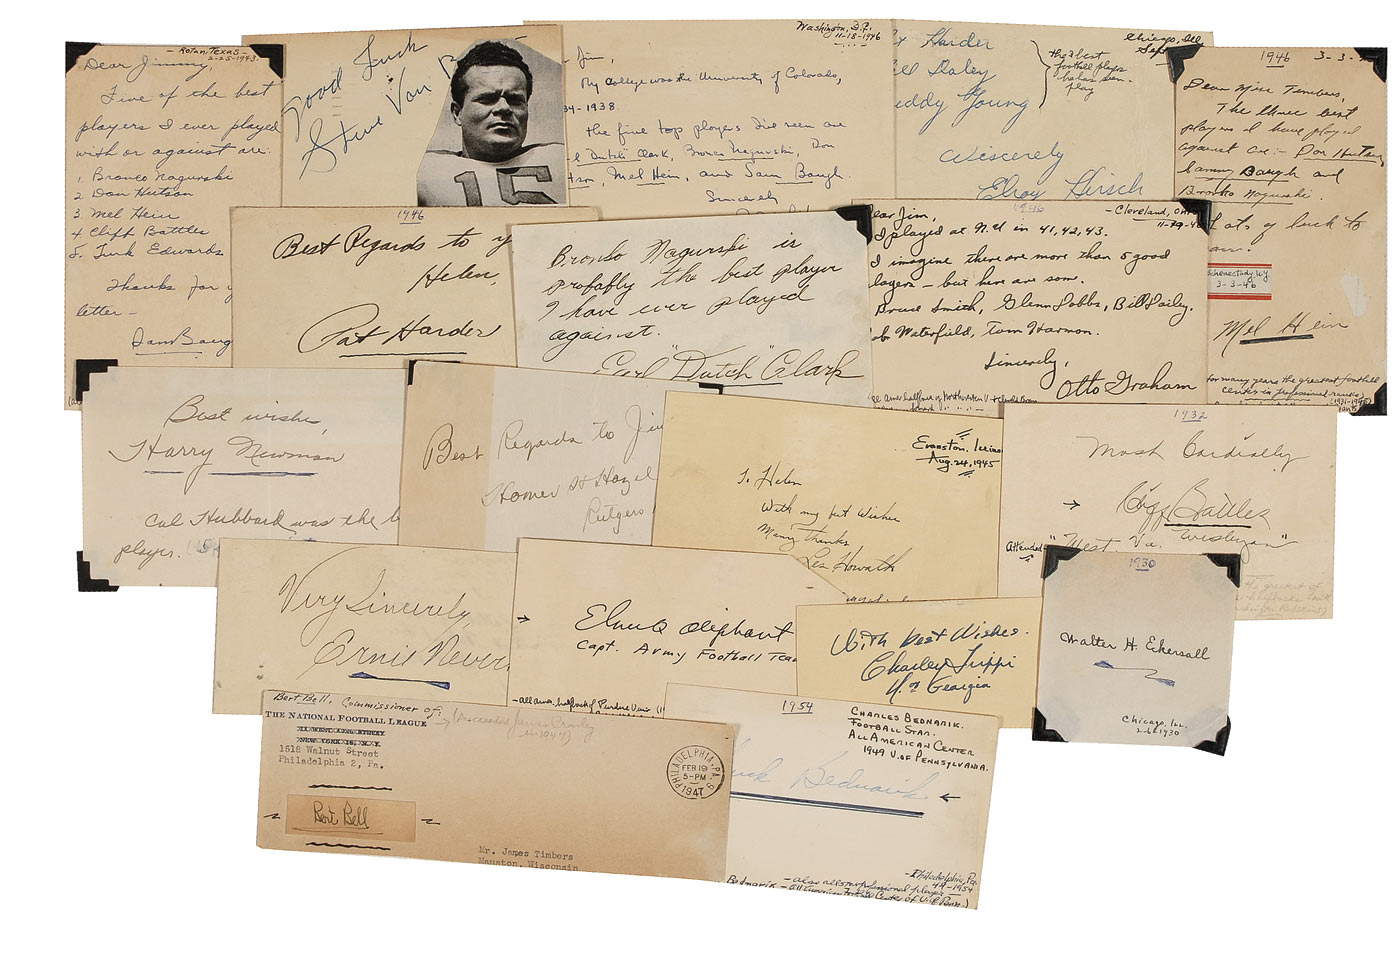 - Rotan, Texas -
2-25-1943
Dear Jimmy,
Five of the best
players I ever played
with or against are:
1. Bronco Nagurski
2 Don Hutson
3. Mel Hein
4 Cliff Battles
5. Turk Edwards
Thanks for y
letter -
Sam Baug
Good Luck
Steve Van B
15
Washington, D.C.
11-18-1946
Jim,
My college was the University of Colorado,
34-1938
the five top players I've seen are
"Dutch" Clark, Bronco Nagurski, Don
tson, Mel Hein, and Sam Baugh.
Sincerely
Chicago, Ill
Sept
t Harder
ll Daley
uddy Young
the best
football players
play
Sincerely
Elroy Hirsch
1946 3-3-
Dear Miss Timbers,
The three best
players I have played
against are :- Don Hutson
Sammy Baugh and
Bronko Nagurski.
Lots of luck to
Schenectady, N.Y
3-3-46
Mel Hein
for many years the greatest football
center in professional ranks
(1931-1945)
1946
Best Regards to y
Helen,
Pat Harder
Bronko Nagurski is
probably the best player
I have ever played
against.
Earl "Dutch" Clark
1946
- Cleveland, Ohio
11-29-46
ear Jim,
I played at N.U in 41, 42, 43.
I imagine there are more than 5 good
layers - but here are som.
Bruce Smith, Glenn Dobbs, Bill Dailey,
ob Waterfield, Tom Harmon.
Sincerely,
Otto Graham
Best wishes,
Harry Newman
Cal Hubbard was the b
player.
Best Regards to Jim
Homer H Hazel
Rutgers
Evanston, Illinois
Aug. 24, 1945
To Helen
With my best Wishes
Many Thanks
Les Horvath
1932
Most Cordially
Cliff Battles
Attended "West. Va. Wesleyan"
Very Sincerely,
Ernie Never
Elmer Q Oliphant
Capt. Army Football Team
- all amer. halfback of Purdue Univ
With best Wishes.
Charley Trippi
U. of Georgia
1930
Walter H. Eckersall
Chicago, Ill.
2-6-1930
Bert Bell, Commissioner of:
THE NATIONAL FOOTBALL LEAGUE
(Succeeded James Crowley
in 1947)
11 WEST 42ND STREET
NEW YORK 18, N.Y.
1518 Walnut Street
Philadelphia 2, Pa.
PHILADELPHIA, PA.
FEB 19
5-PM
1947
Bert Bell
Mr. James Timbers
Mauston, Wisconsin
1954
CHARLES BEDNARIK.
FOOTBALL STAR.
ALL AMERICAN CENTER
1949 U. OF PENNSYLVANIA.
uck Bednarik
- Philadelphia, Pa.
1954
Bednarik - also allstar professional player
- All American Football Center of U. of Penn.)